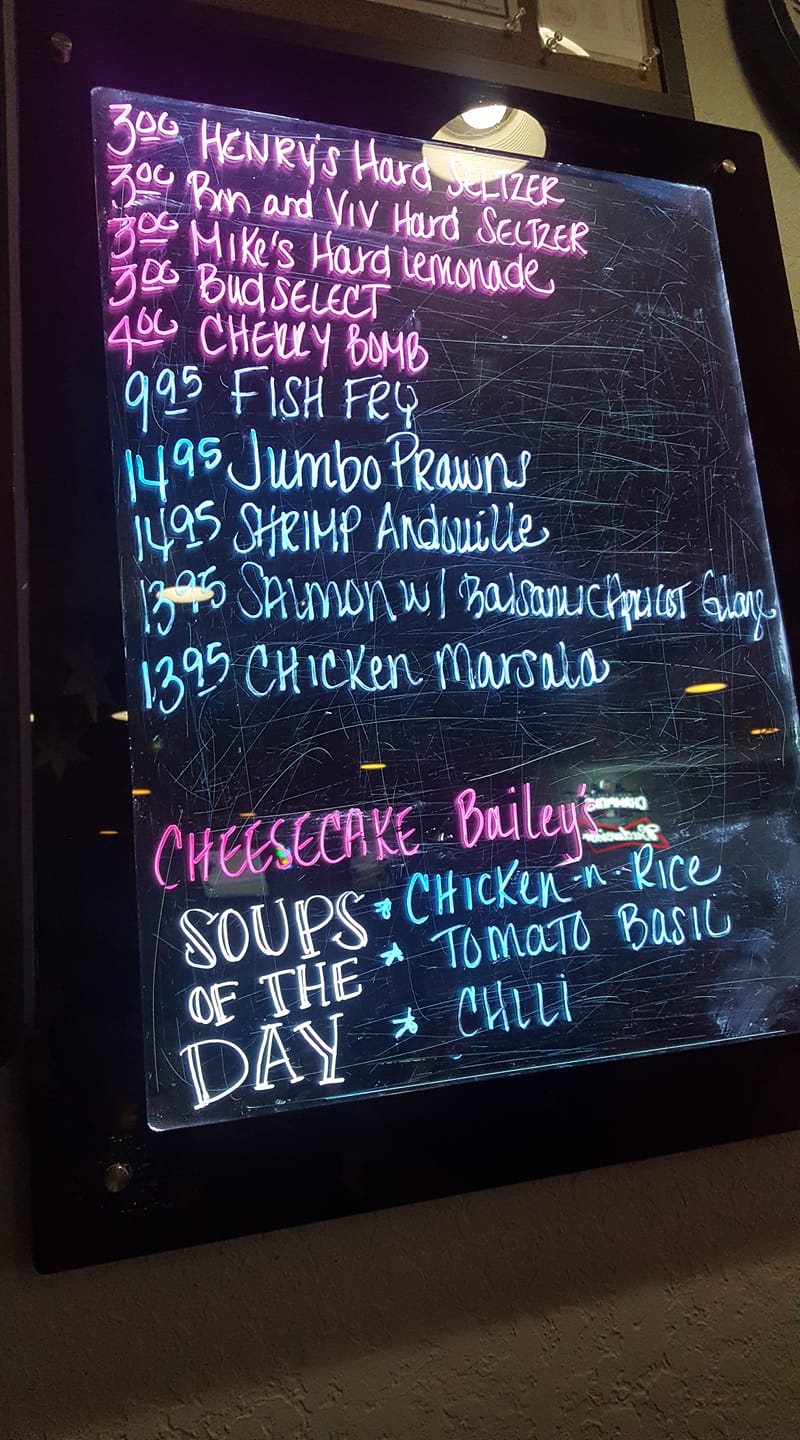 3.00 HENRY's Hard SELTZER
3.00 Bon and VIV Hard SELTZER
3.00 MIKE's Hard Lemonade
3.00 Bud SELECT
4.00 CHERRY BOMB
9.95 FISH FRY
14.95 Jumbo Prawns
14.95 SHRIMP Andouille
13.95 SALMON w/ Balsamic Apricot Glaze
13.95 CHICKEN Marsala
CHEESECAKE Bailey's
SOUPS OF THE DAY
* CHICKEN-n-RICE
* TOMATO BASIL
* CHILI
Budweiser